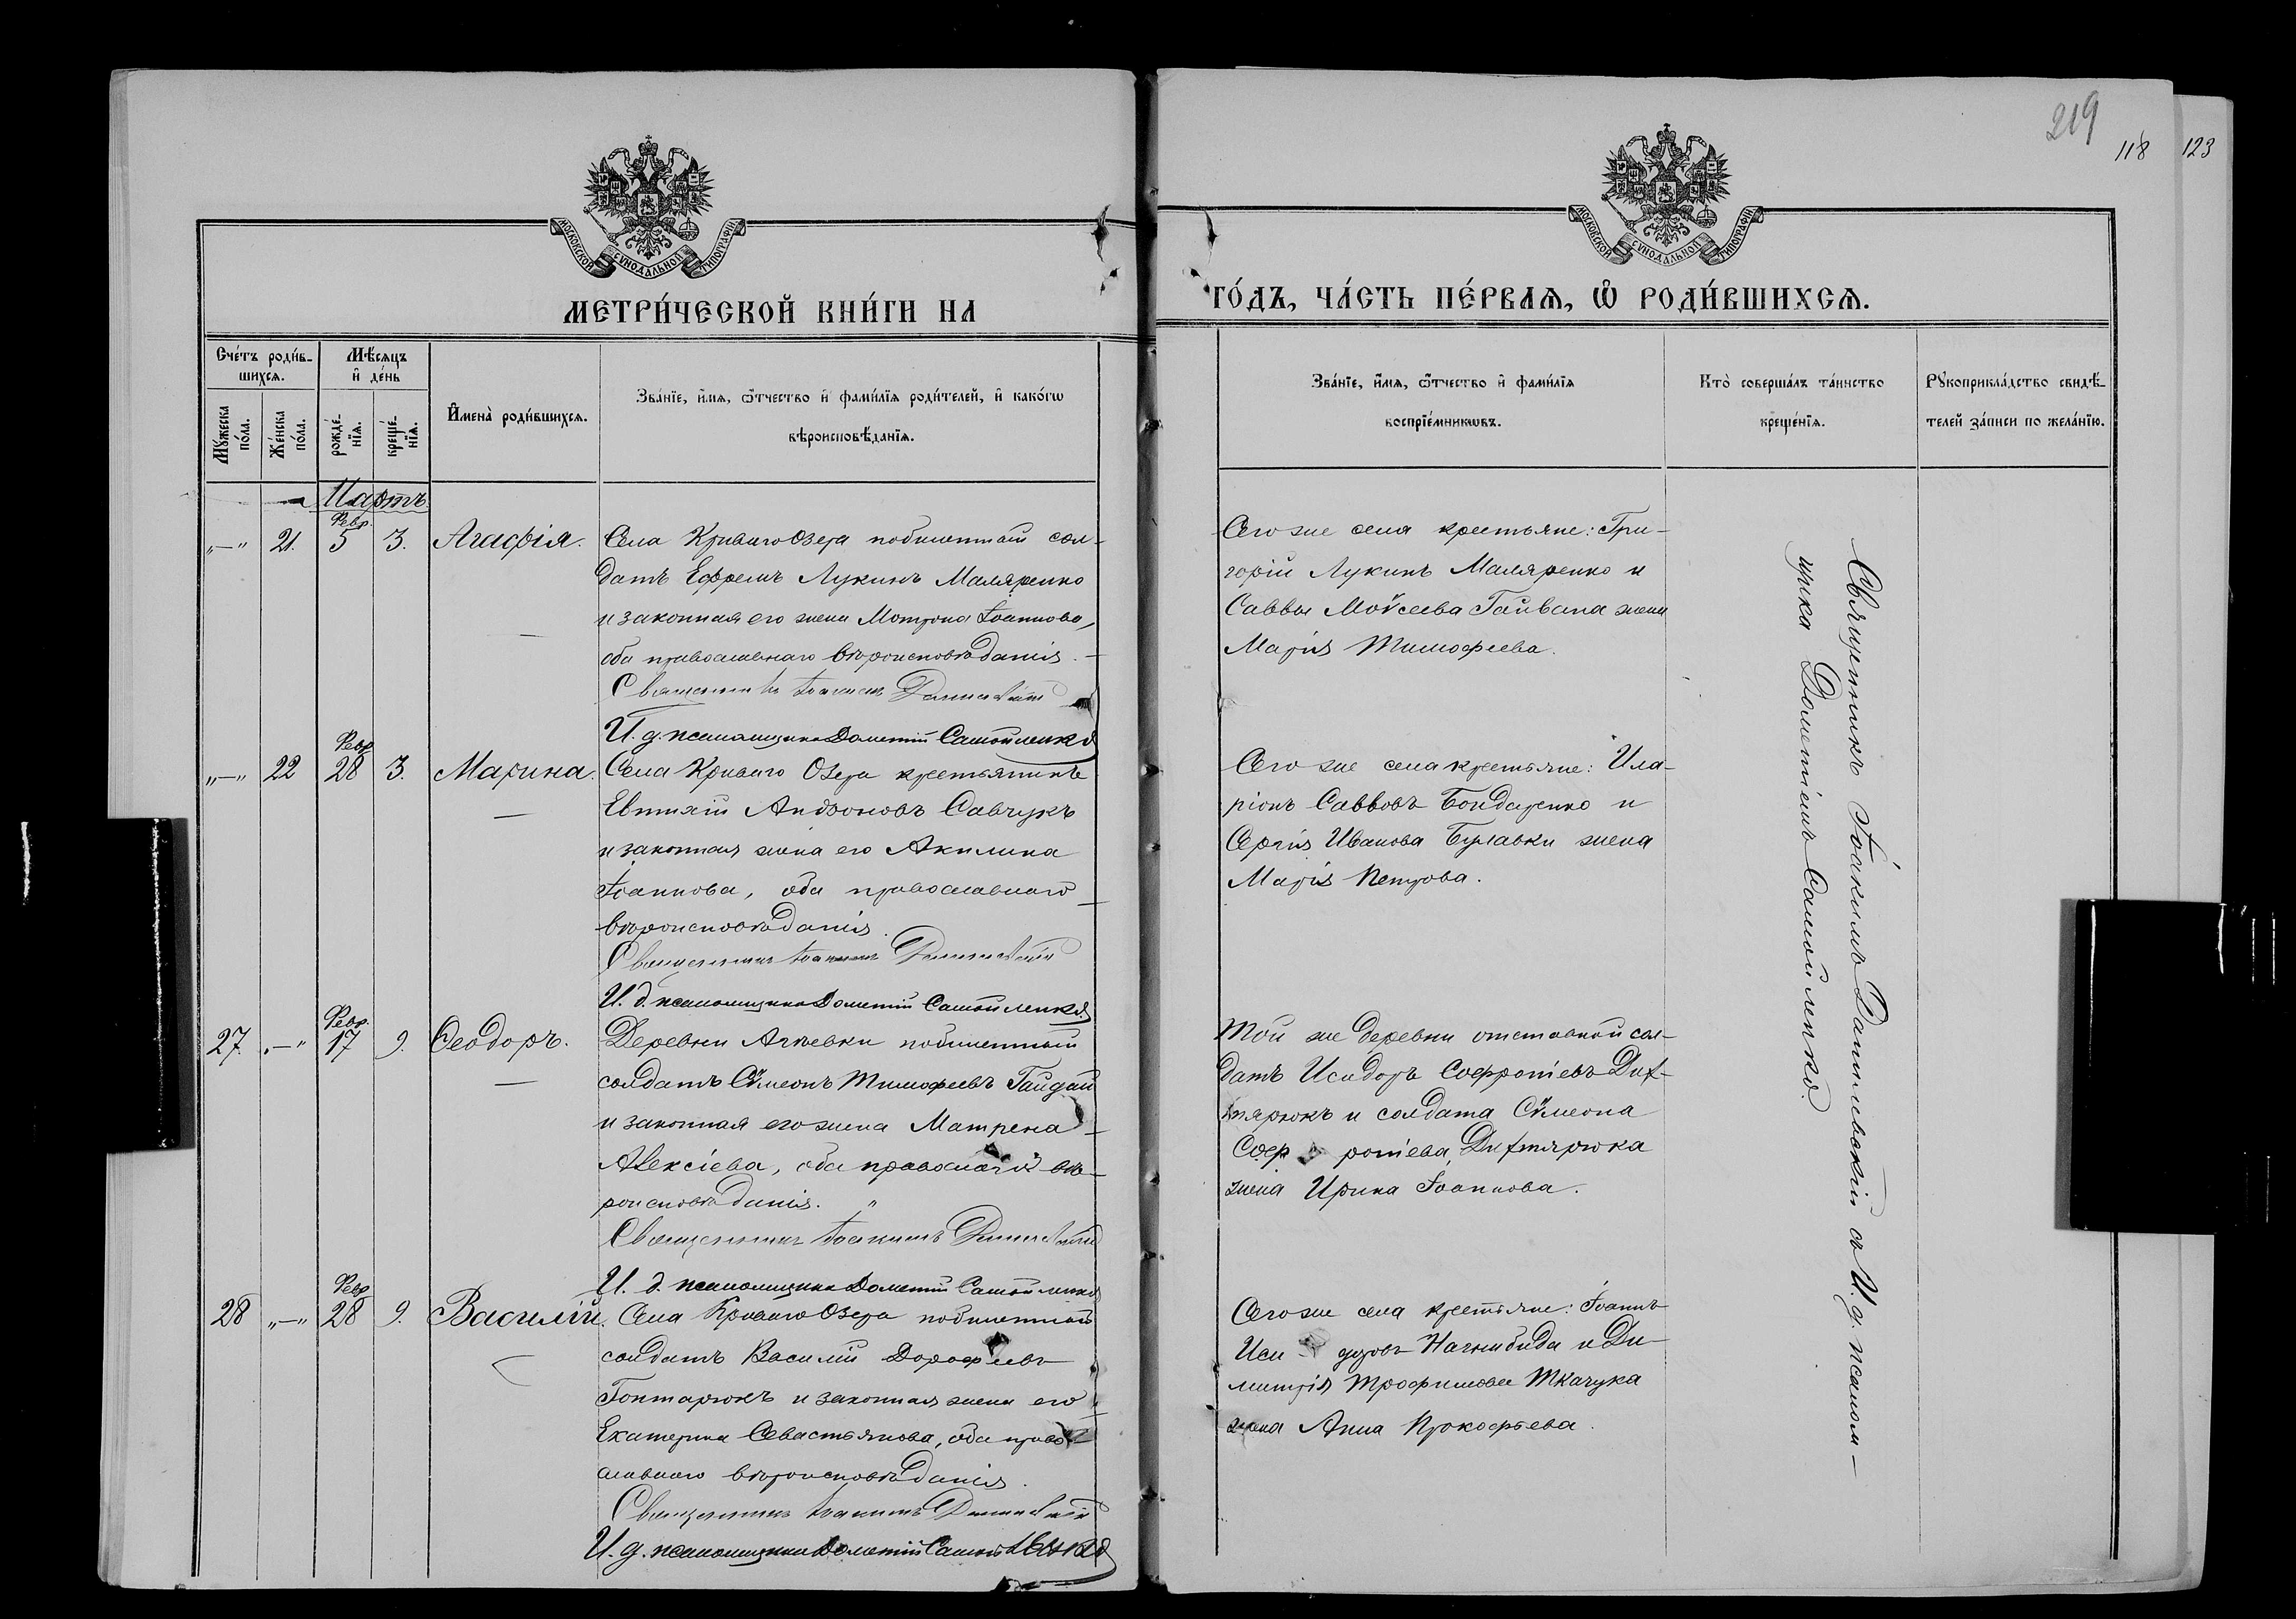 219
118
123
МОСКОВСКОЙ СѴНОДАЛЬНОЙ ТИПОГРАФІИ
МОСКОВСКОЙ СѴНОДАЛЬНОЙ ТИПОГРАФІИ
МЕТРИ́ЧЕСКОЙ КНИ́ГИ НА
ГО́ДЪ, ЧА́СТЬ ПЕ́РВАѦ, Ѡ҆ РОДИ́ВШИХСѦ.
Сче́тъ роди́в-
шихсѧ.
Мѣ́сѧцъ
и҆ де́нь
Мꙋ́жеска
по́ла.
Же́нска
по́ла.
рожде́-
нїѧ.
креще́-
нїѧ.
И҆мена̀ роди́вшихсѧ.
Зва́нїе, и҆́мѧ, ѻ҆́тчество и҆ фами́лїѧ роди́телей, и҆ како́гѡ
вѣроисповѣ́данїѧ.
Зва́нїе, и҆́мѧ, ѻ҆́тчество и҆ фами́лїѧ
воспрїе́мникѡвъ.
Кто̀ соверша́лъ та́инство
креще́нїѧ.
Рꙋкоприкла́дство свидѣ́-
телей за́писи по жела́нїю.
Мартъ
Февр.
„—“ 21. 5 3. Агафія.
Села Криваго Озера побилетный сол-
датъ Ефремъ Лукинъ Маляренко
и законная его жена Мотрона Іоаннова,
оба православнаго вѣроисповѣданія.
Священникъ Іоакимъ Данилевскій
И. д. псаломщика Дометій Самойленко
Сего же села крестьяне: Гри-
горій Лукинъ Маляренко и
Саввы Моѵсеева Гайвана жена
Марія Тимофеева.
Февр
„—“ 22 28 3. Марина.
Села Криваго Озера крестьянинъ
Евтихій Андроновъ Савчукъ
и законная жена его Акилина
Іоаннова, оба православнаго
вѣроисповѣданія.
Священникъ Іоакимъ Данилевскій
И. д. псаломщика Дометій Самойленко
Сего же села крестьяне: Ила-
ріонъ Саввовъ Бондаренко и
Сергія Иванова Булавки жена
Марія Петрова.
Февр.
27 „—“ 17 9. Ѳеодоръ.
Деревни Агѣевки побилетный
солдатъ Сѵмеонъ Тимофеевъ Гайдай
и законная его жена Матрена
Алексіева, оба вѣ-
роисповѣданія.
Священникъ Іоакимъ Данилевскій
И. д. псаломщика Дометій Самойленко
Той же деревни отставной сол-
датъ Исидоръ Софроніевъ
и солдата Сѵмеона
Соф роніева
жена Ирина Іоаннова.
Февр
28 „—“ 28 9. Василій.
Села Криваго Озера побилетный
солдатъ Василій Дорофеевъ
Гонтарюкъ и законная жена его
Екатерина Севастьянова, оба право-
славнаго вѣроисповѣданія.
Священникъ Іоакимъ Данилевскій
И. д. псаломщика Дометій Самойленко
Сего же села крестьяне: Іоаннъ
Иси доровъ Нагнибида и Ди-
митрія Трофимова Ткачука
жена Анна Прокофьева.
Священникъ Іоакимъ Данилевскій съ И. д. псалом-
щика Дометіемъ Самойленко.